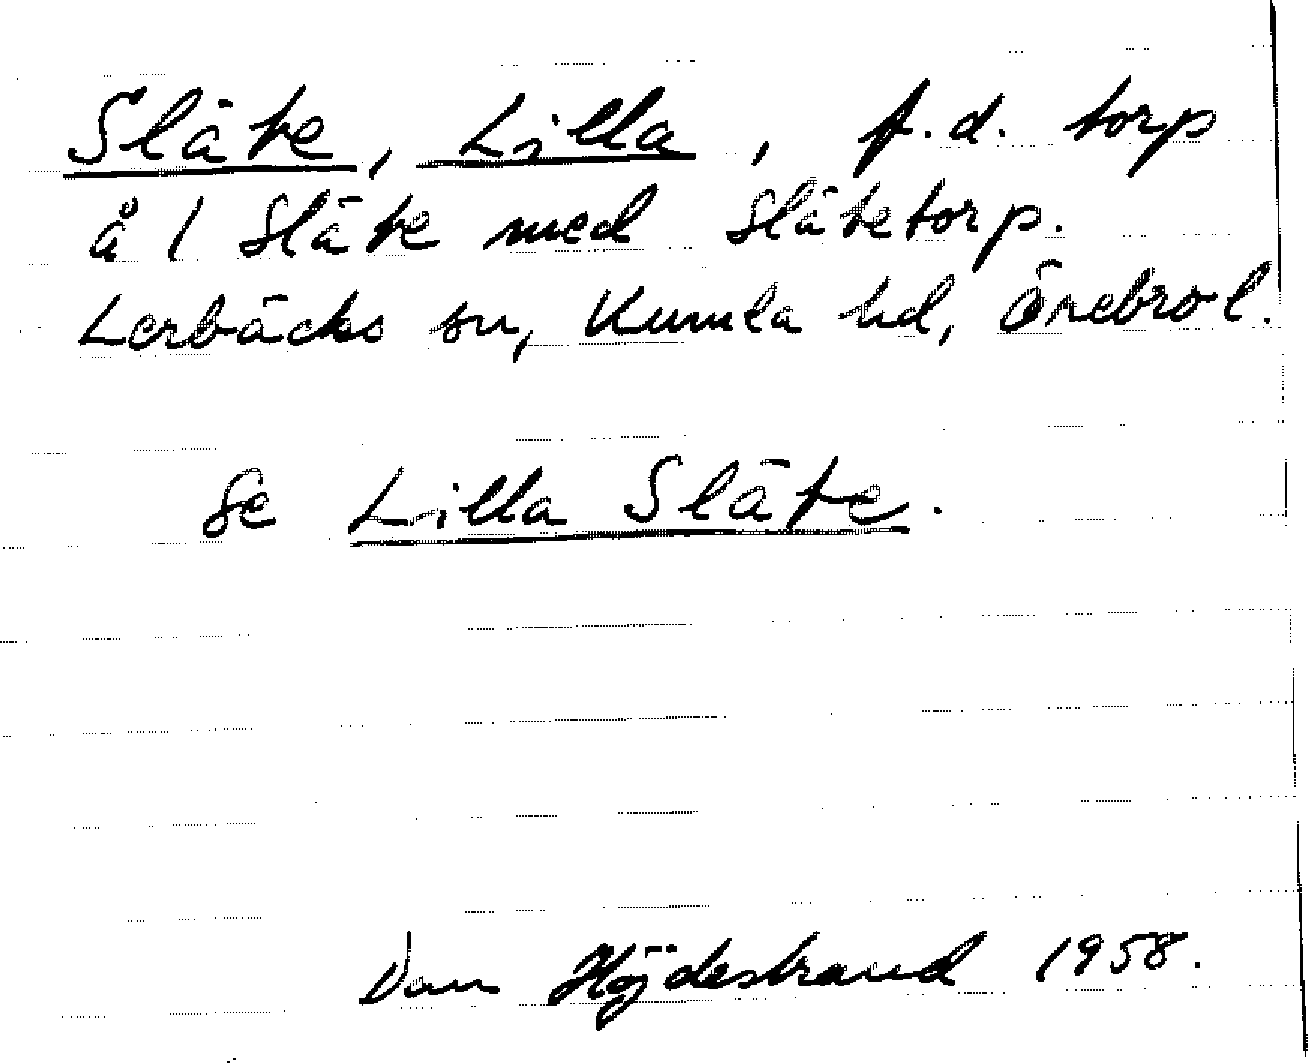 Släte, Lilla, f.d. torp
å 1 Släte med Slätetorp.
Lerbäcks sn, Kumla hd, Örebro l.
Se Lilla Släte.
Dan Höjdestrand 1958.